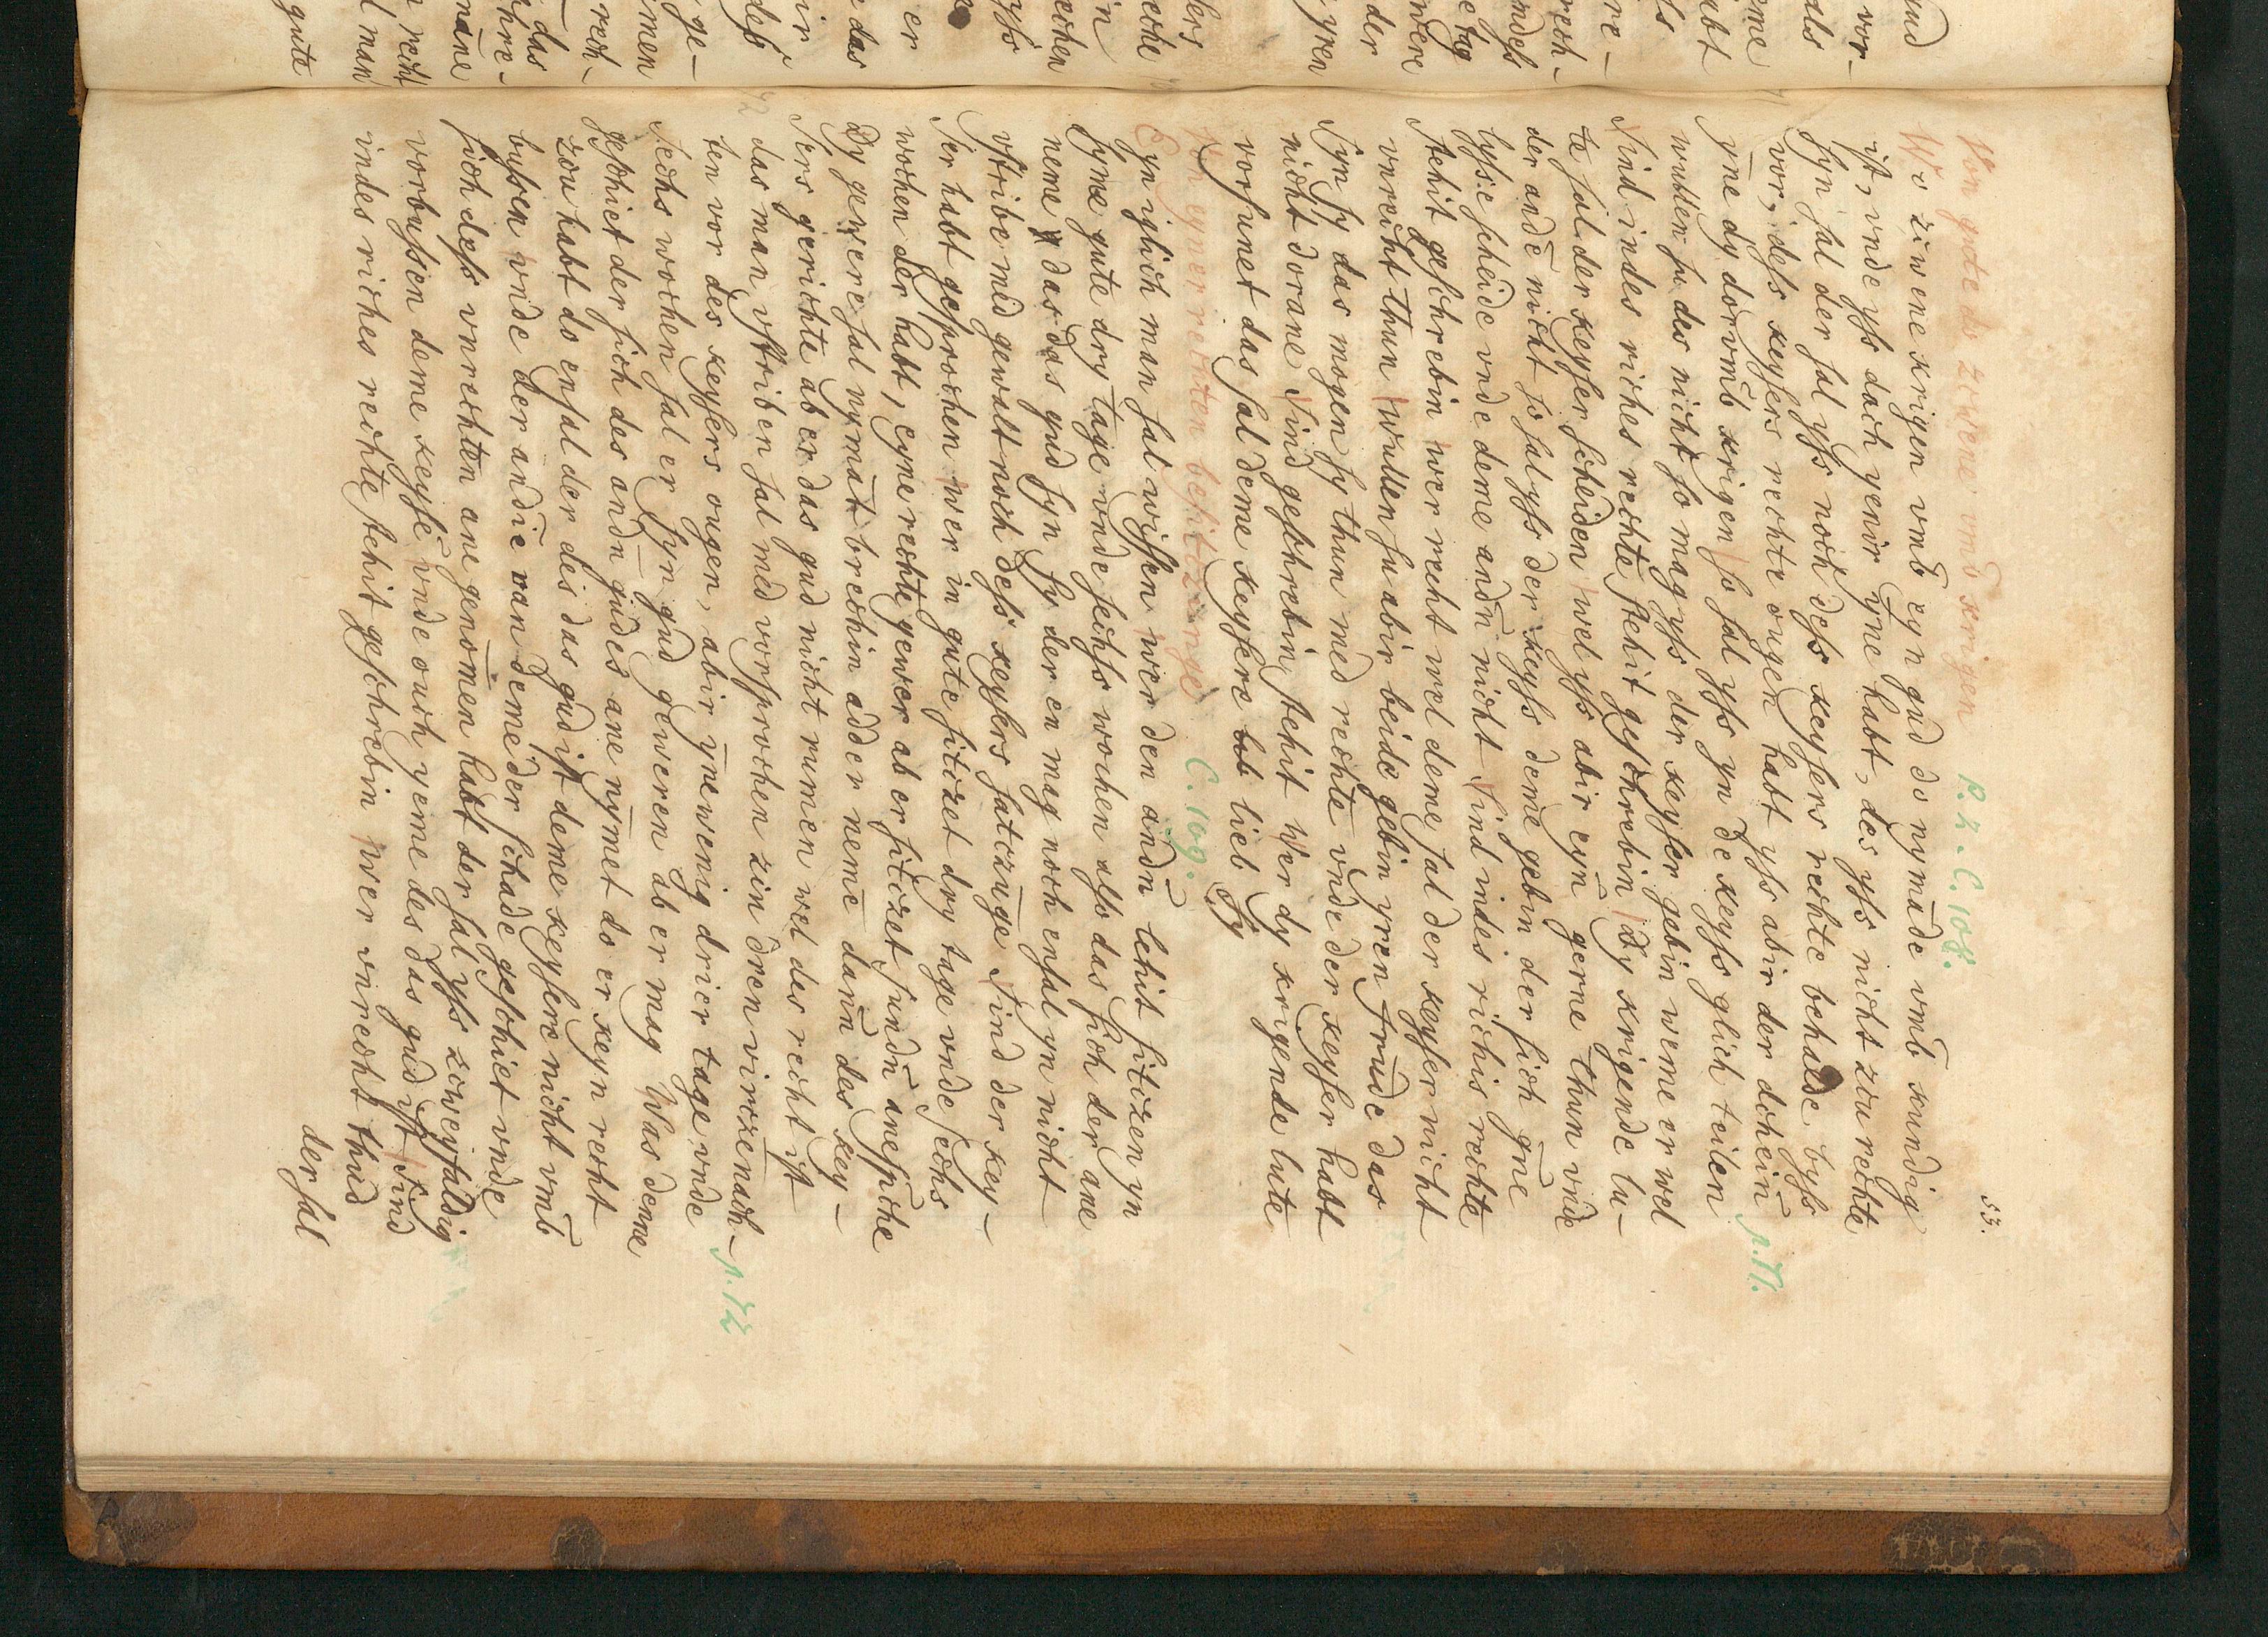 53.
Von gute do zcwene vmb krigen R. 2. C. 108.
Wo zcwene krigen vmb eyn gud do nymāde vmb kundig
ist, vnde yß doch yenir yne habt, des yß nicht zcu rechte
syn sal der sal yß noch deß keysers rechte behalde byß
vor, deß keysers rechte ougen habt yß abir der dohein p. 71.
yne dy dorvmb krigen so sal yß yn de keyß glich teilen
wullen su des nicht so mag yß der keyser gebin weme er wel
Sind indes riches rechte stehit geschrebin dy krigende lu-
te sal der keyser scheiden wel yß abir eyn gerne thun vnde
der andē nicht so sal yß der keyß deme gebin der sich gne
lysse scheide vnde deme andn nicht Sind indes richis rechte
stehit geschrebin wer recht wel deme sal der keyser nicht
vnrecht thun wullen su abir beide gebin yren frude das
syn sy das mogen sy thun med rechte vnde der keyser habt
nicht dorane Sind geschrebin stehit Wer dy krigende lute
vorsunet das sal deme keysere lieb sy
Von eyner rechten besitzunge C. 109.
Eyn iglich man sal wissen wer den andn lehit sitczen yn
syme gute dry tage vnde sechß wochen also das sich der ane
neme das das gud syn sy der en mag noch ensal yn nicht
vstribe med gewalt noch deß keysers satczuge Sind der key-
ser habt gesprochen wer in gute sitczet dry tage vnde sechs
wochen der habt, eyne rechte gewer ab er sitczet sundn anespche
dy gewere sal nymāt brechin adder neme dann des key-
sers gerichte ab er das gud nicht rumen wel des recht ist
das man vstriben sal med vorsprochen zin dren virczenach-
ten vor des keysers ougen, abir ynewenig drier tage vnde p. 72
sechs wochen sal er syn gud geweren ab er mag Was denne
geschiet der sich des andn gudes ane nymet do er keyn recht
zcu habt do ensal der des das gud ist deme keysere nicht vmb
bussen vnde der andie van deme der schade geschiet vnde
sich deß vnrechten ane genomen habt der sal yß zcweyfaldig
vorbussen deme keyse vnde ouch yeme des das gud ist Sind
indes riches rechte stehit geschrebin wer vnrecht thud
der sal